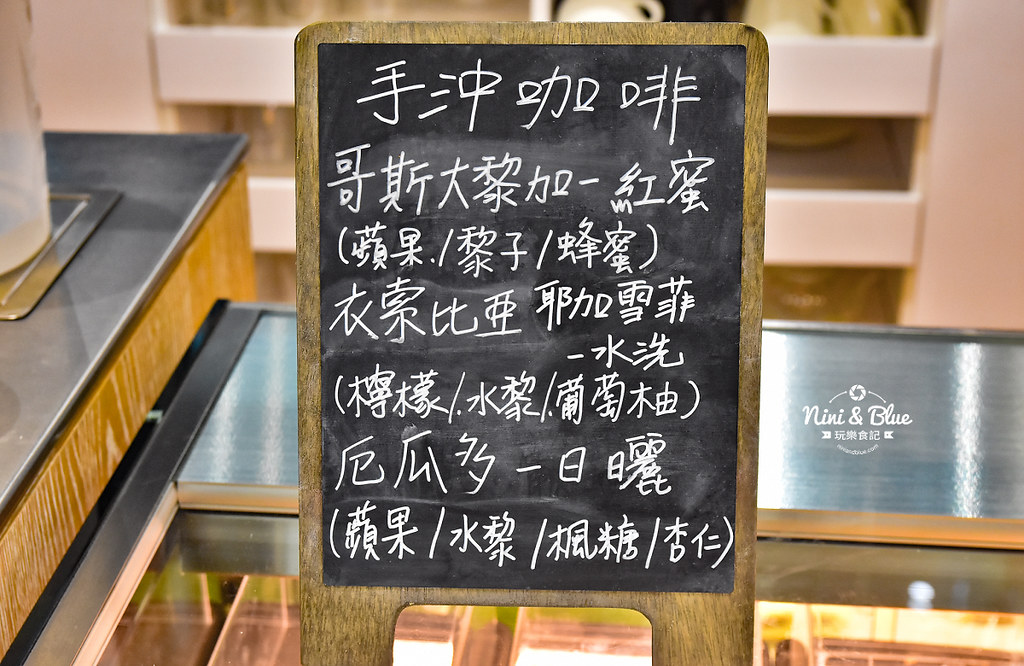 手沖咖啡
哥斯大黎加-紅蜜
(蘋果/黎子/蜂蜜)
衣索比亞 耶加雪菲
-水洗
(檸檬/水黎/葡萄柚)
厄瓜多-日曬
(蘋果/水黎/楓糖/杏仁)
Nini & Blue
玩樂食記
niniandblue.com